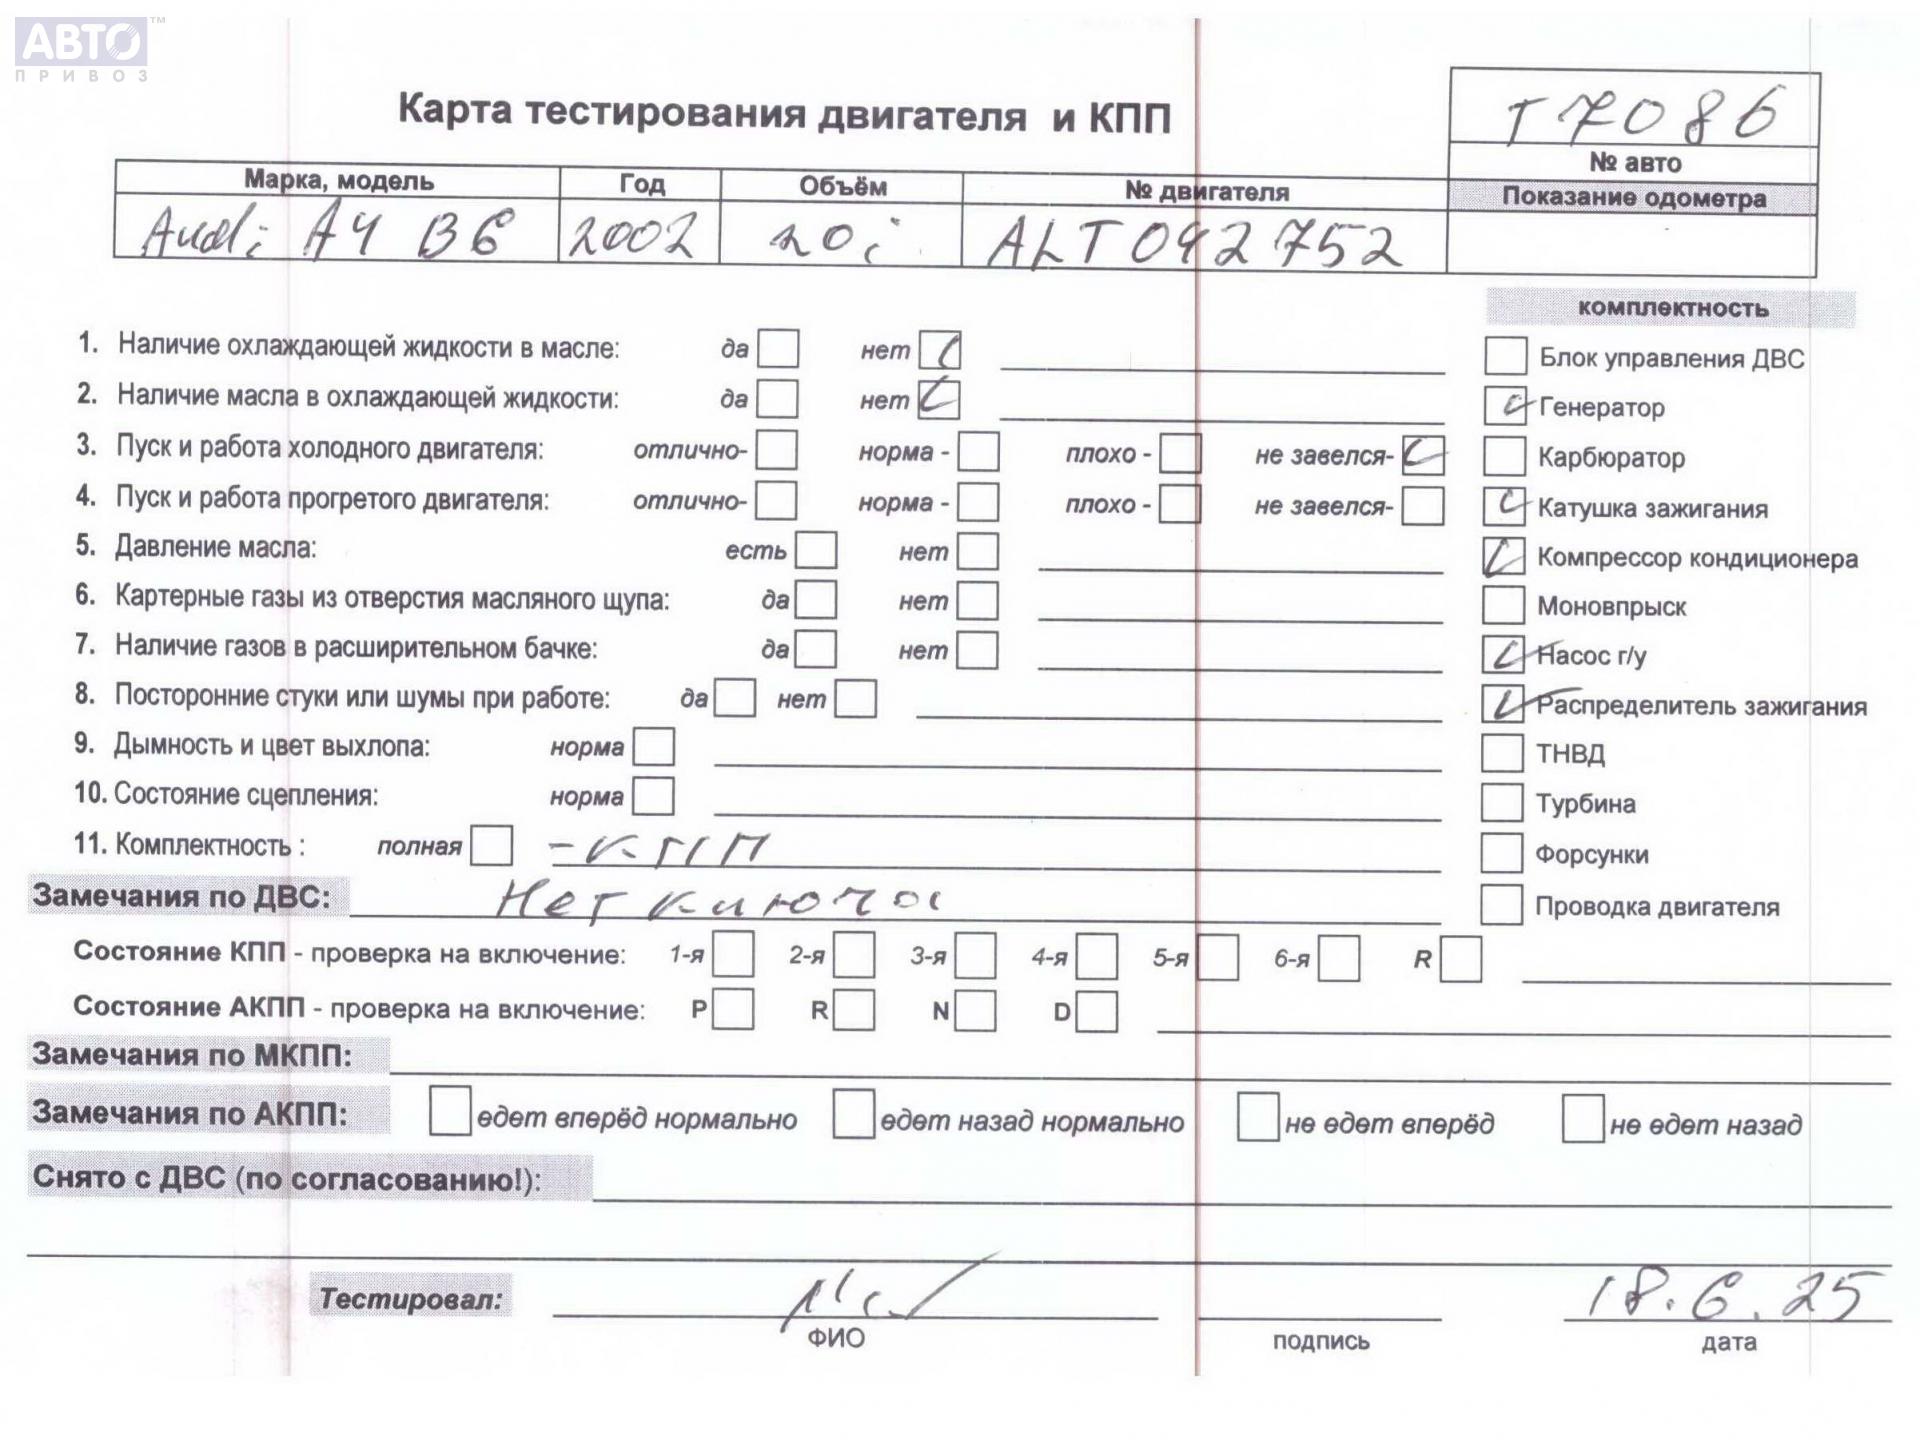 АВТО™
ПРИВОЗ
Карта тестирования двигателя и КПП
T7086
№ авто
Марка, модель Год Объём № двигателя Показание одометра
Audi A4 B6 2002 20i ALT 092752
комплектность
1. Наличие охлаждающей жидкости в масле: да нет
Блок управления ДВС
2. Наличие масла в охлаждающей жидкости: да нет
Генератор
3. Пуск и работа холодного двигателя: отлично- норма - плохо - не завелся-
Карбюратор
4. Пуск и работа прогретого двигателя: отлично- норма - плохо - не завелся-
Катушка зажигания
5. Давление масла: есть нет
Компрессор кондиционера
6. Картерные газы из отверстия масляного щупа: да нет
Моновпрыск
7. Наличие газов в расширительном бачке: да нет
Насос г/у
8. Посторонние стуки или шумы при работе: да нет
Распределитель зажигания
9. Дымность и цвет выхлопа: норма
ТНВД
10. Состояние сцепления: норма
Турбина
11. Комплектность : полная - КПП
Форсунки
Замечания по ДВС: Нет ключа
Проводка двигателя
Состояние КПП - проверка на включение: 1-я 2-я 3-я 4-я 5-я 6-я R
Состояние АКПП - проверка на включение: P R N D
Замечания по МКПП:
Замечания по АКПП: едет вперёд нормально едет назад нормально не едет вперёд не едет назад
Снято с ДВС (по согласованию!):
Тестировал: 18.6.25
ФИО подпись дата